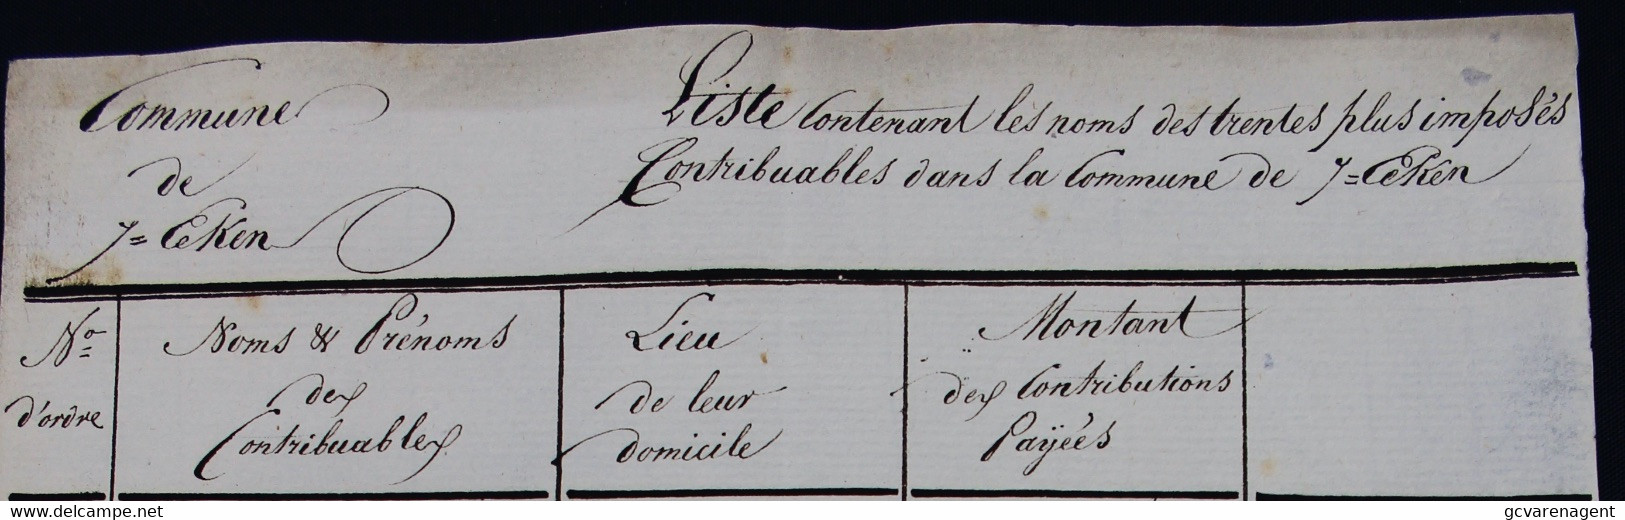 Commune
de
7=Eeken
Liste Contenant les noms des trentes plus imposés
Contribuables dans la Commune de 7=Eeken
No
d'ordre
Noms & Prénoms
des
Contribuables
Lieu
de leur
domicile
Montant
des Contributions
Payées
www.delcampe.net
gcvarenagent